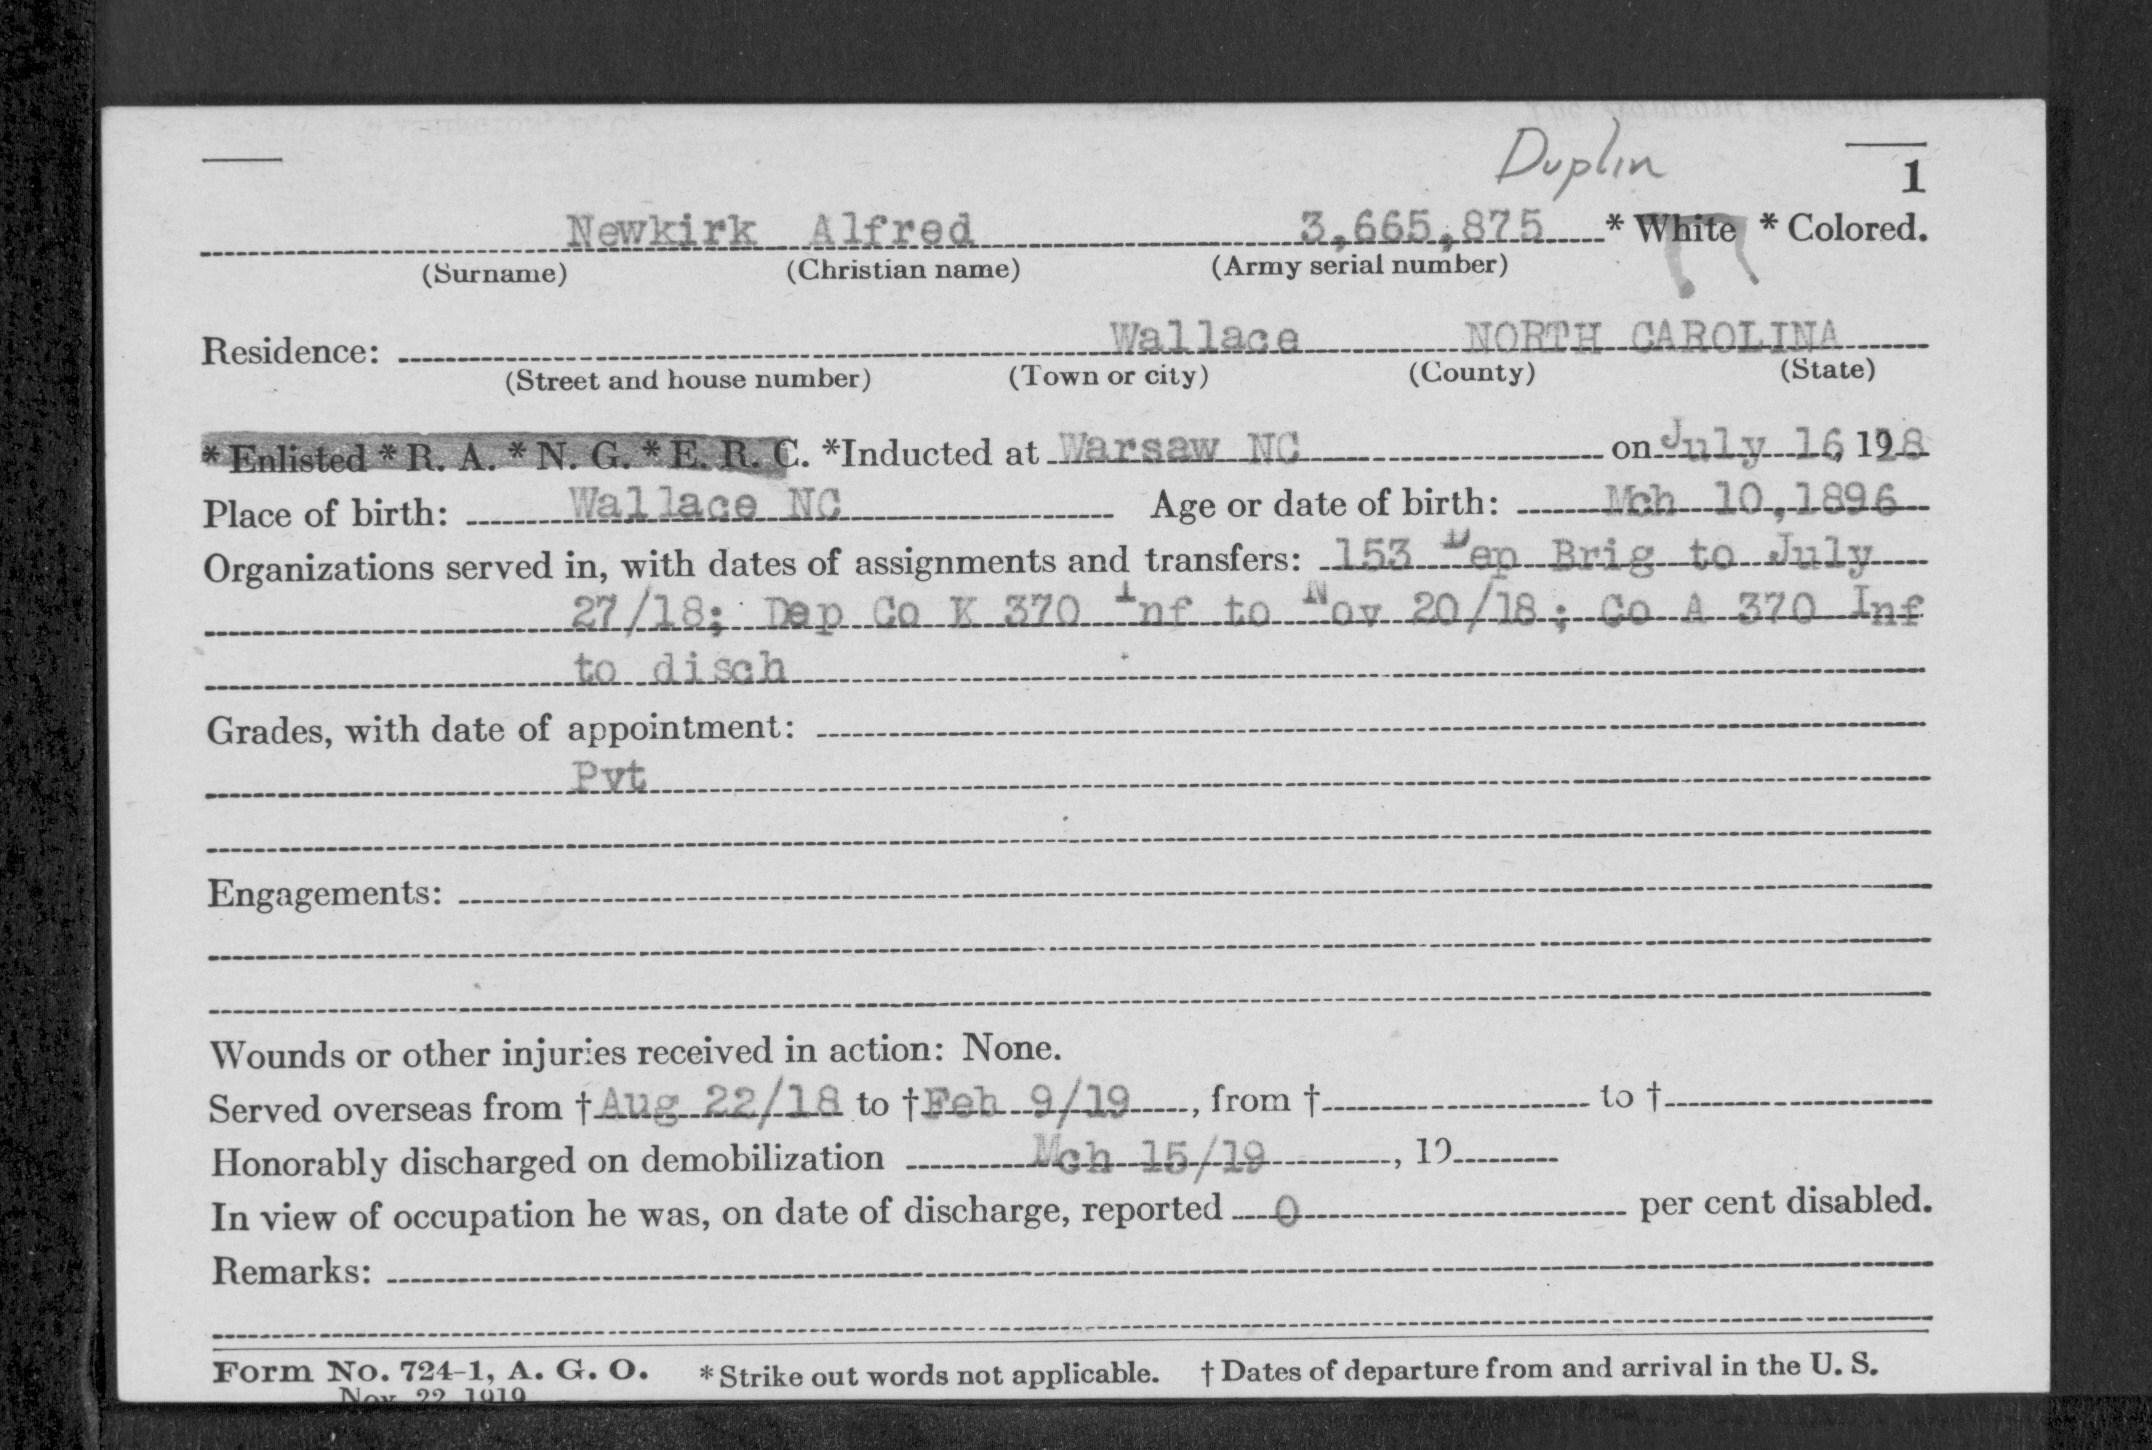 Duplin
1
Newkirk Alfred 3,665,875 * White * Colored.
(Surname) (Christian name) (Army serial number)
Residence: Wallace NORTH CAROLINA
(Street and house number) (Town or city) (County) (State)
* Enlisted * R. A. * N. G. * E. R. C. *Inducted at Warsaw NC on July 16, 1918
Place of birth: Wallace NC Age or date of birth: Mch 10, 1896
Organizations served in, with dates of assignments and transfers: 153 Dep Brig to July
27/18; Dep Co K 370 Inf to Nov 20/18; Co A 370 Inf
to disch
Grades, with date of appointment:
Pvt
Engagements:
Wounds or other injuries received in action: None.
Served overseas from † Aug 22/18 to † Feb 9/19, from † to †
Honorably discharged on demobilization Mch 15/19, 19
In view of occupation he was, on date of discharge, reported 0 per cent disabled.
Remarks:
Form No. 724-1, A. G. O. * Strike out words not applicable. † Dates of departure from and arrival in the U. S.
Nov. 22, 1919